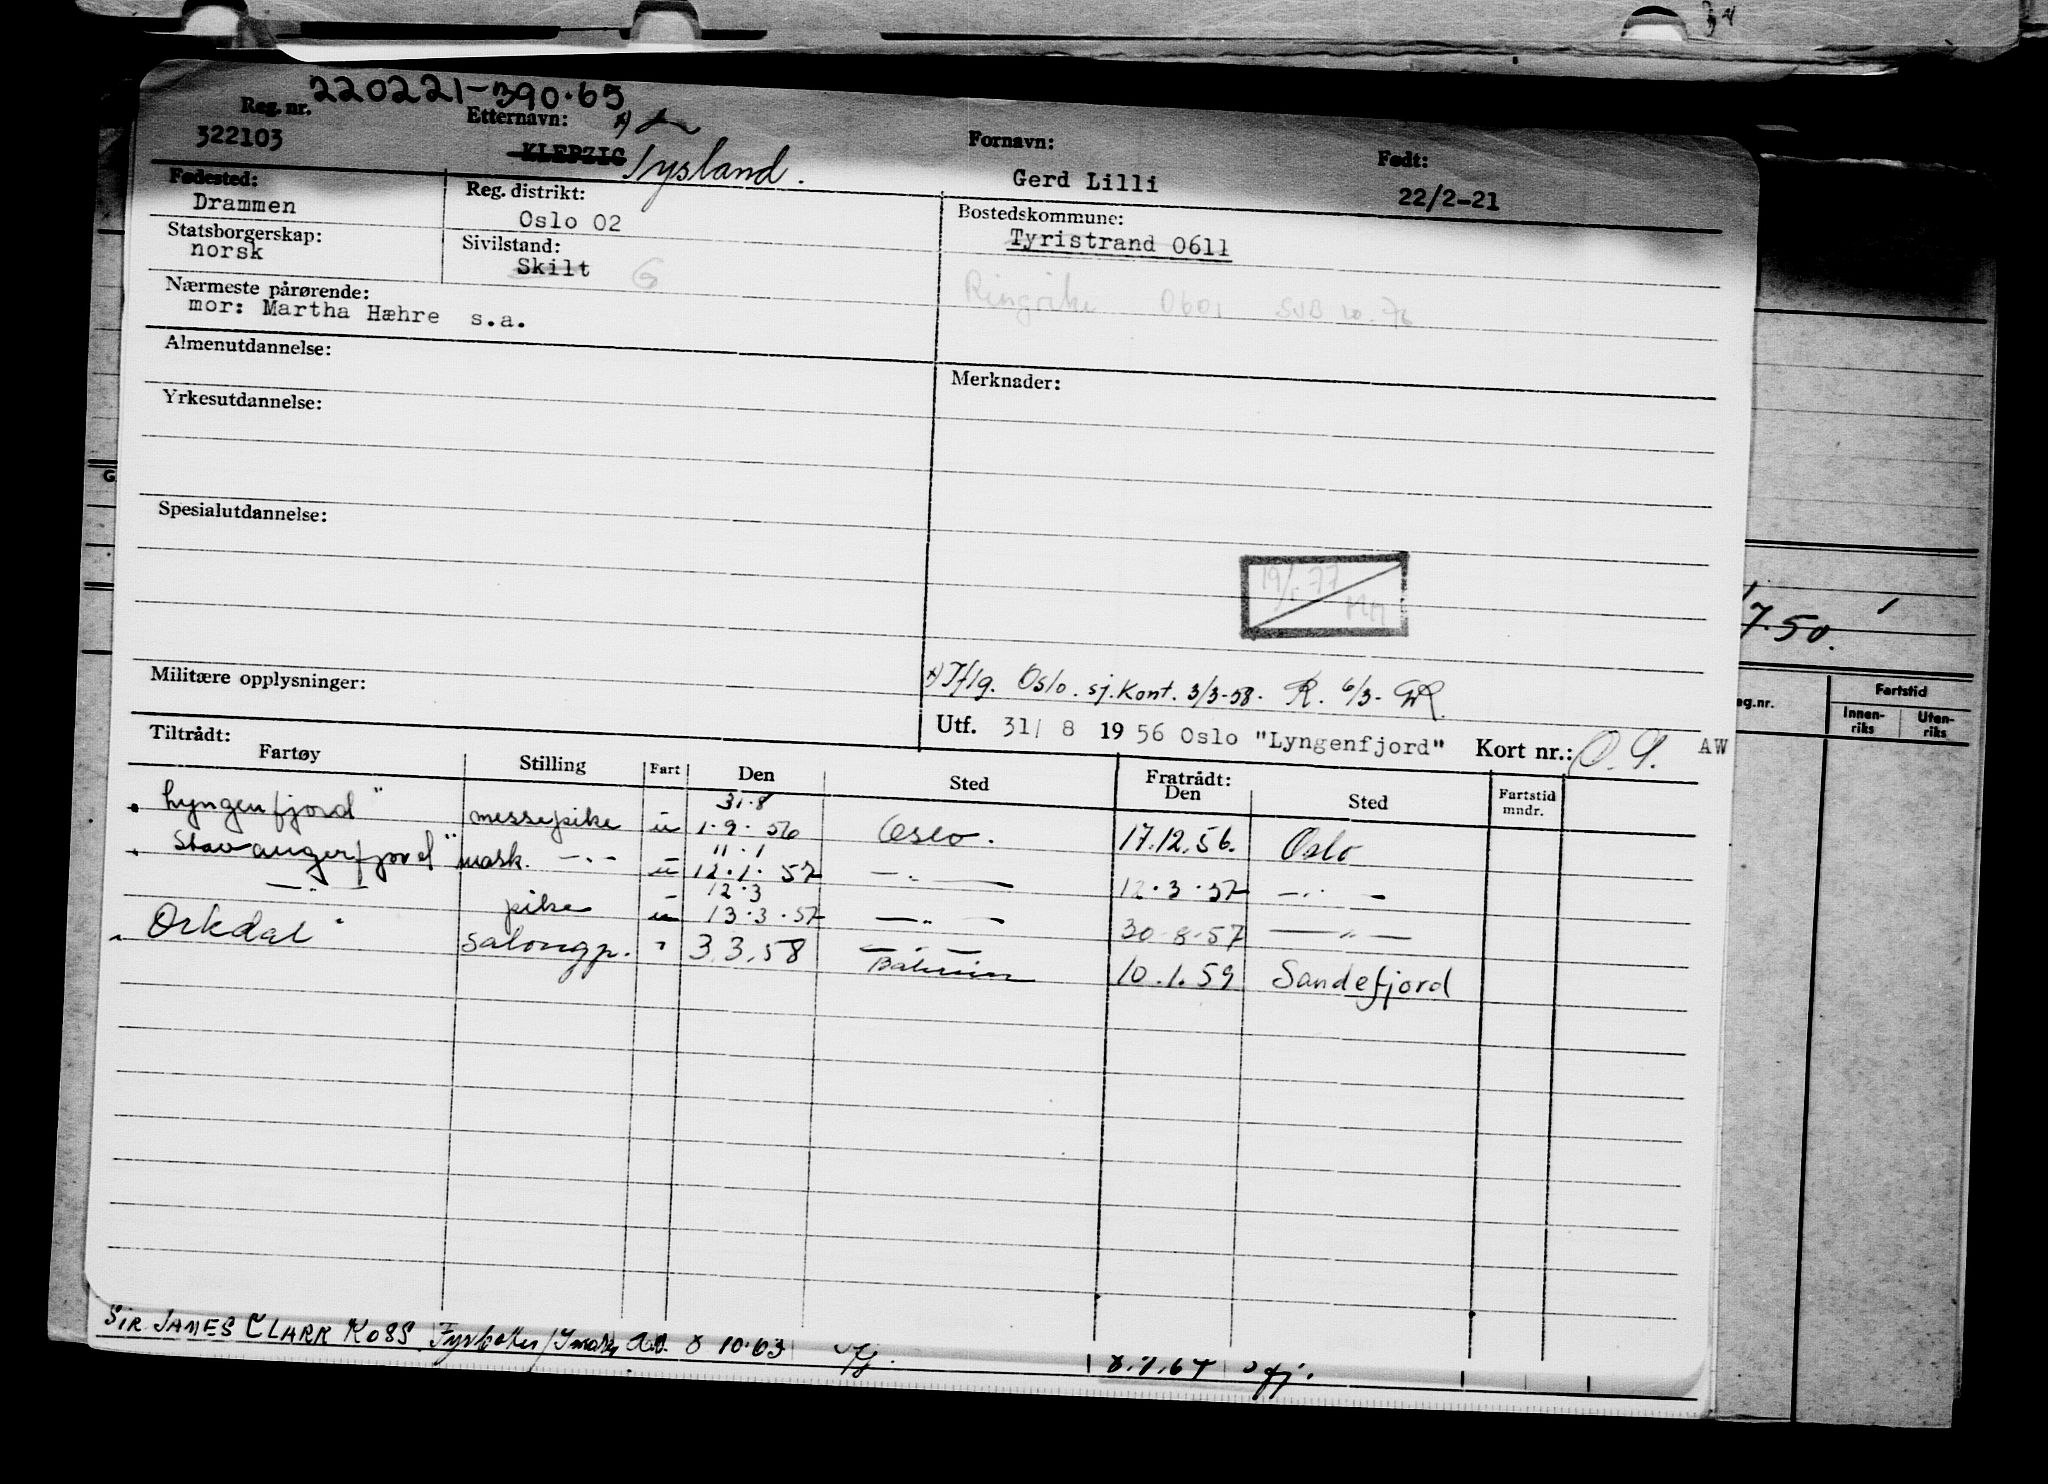 220221-390.65
Reg. nr. Etternavn: x) Fornavn: Født:
322103 KLEPZIG Tysland. Gerd Lilli 22/2-21
Fødested: Reg. distrikt: Bostedskommune:
Drammen Oslo 02 Tyristrand 0611
Statsborgerskap: Sivilstand:
norsk Skilt G Ringrike 0601 SJB 10.76
Nærmeste pårørende:
mor: Martha Hæhre s.a.
Almenutdannelse: Merknader:
Yrkesutdannelse:
Spesialutdannelse:
19/1.77
Militære opplysninger: x) Iflg. Oslo. sj.kont. 3/3-58. R. 6/3-
Utf. 31/ 8 19 56 Oslo "Lyngenfjord" Kort nr.: AW
Tiltrådt: Fratrådt:
Fartøy Stilling Fart Den Sted Den Sted Fartstid mndr.
31.8
Lyngenfjord" messepike u 1.9.56 Oslo. 17.12.56. Oslo
11.1
Stavangerfjord" mask. -"- u 12.1.57 -"- 12.3.57 -"-
12.3
-"- pike u 13.3.57 -"- 30.8.57 -"-
Orkdal" salongp. " 3.3.58 -"- 10.1.59 Sandefjord
SIR JAMES CLARK ROSS 8 10.63
7.50.
g.nr. Fartstid
Innen-riks Uten-riks
G